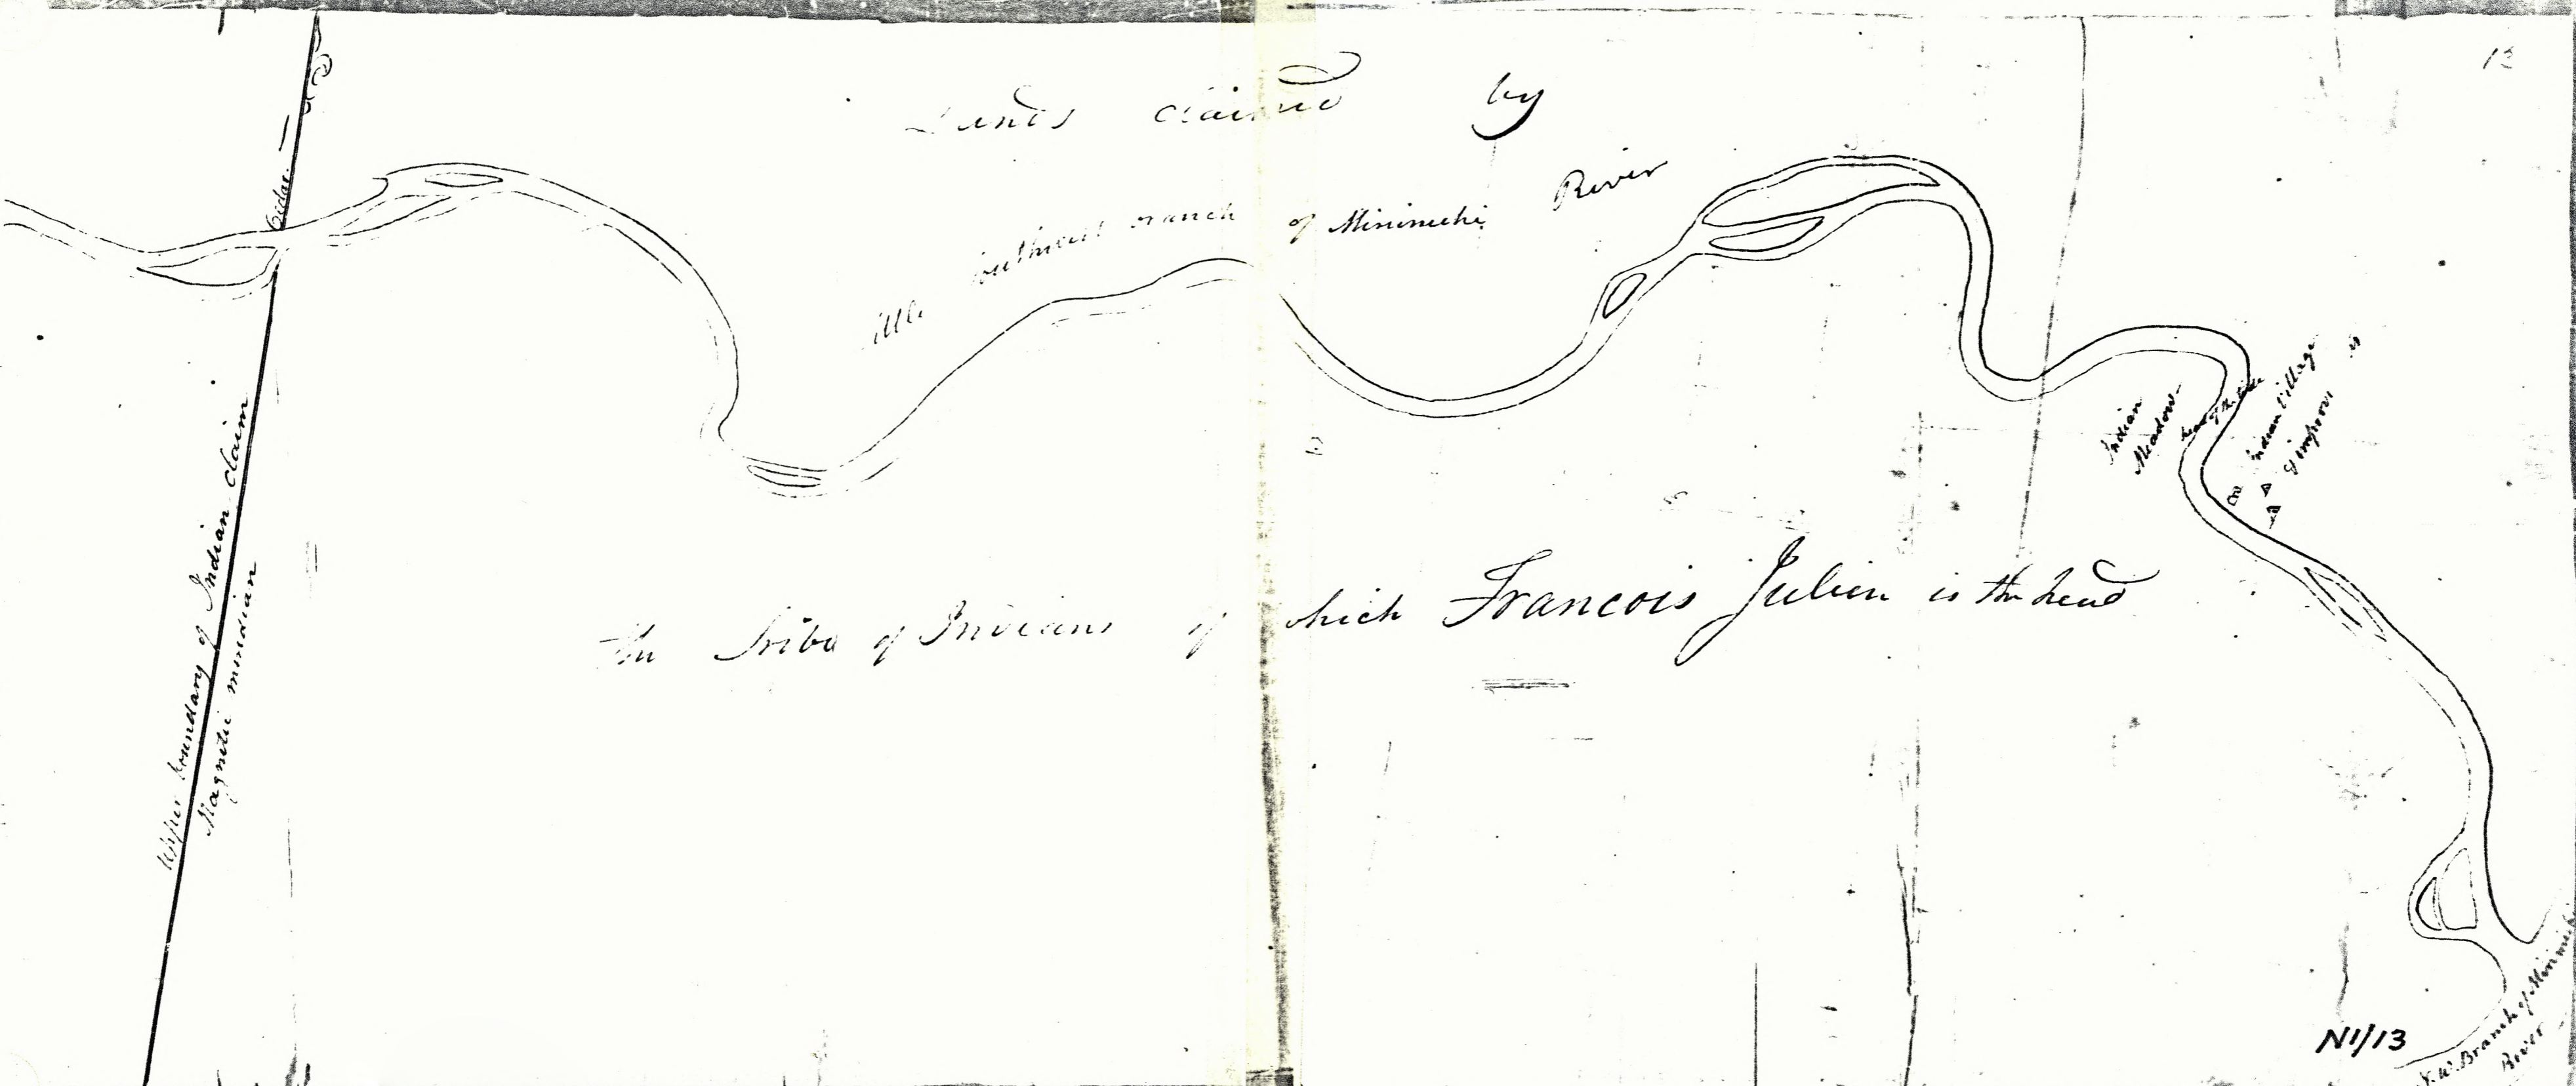 13
Lands claimed by
Little Southwest Branch of Mirimichi River
Cedar
Upper boundary of Indian claim
Magnetic meridian
Indian
Meadow
head of the tide
Indian Village
& improv
the Tribe of Indians of which Francois Julien is the head
N1/13
N.W. Branch of Mirimichi
River